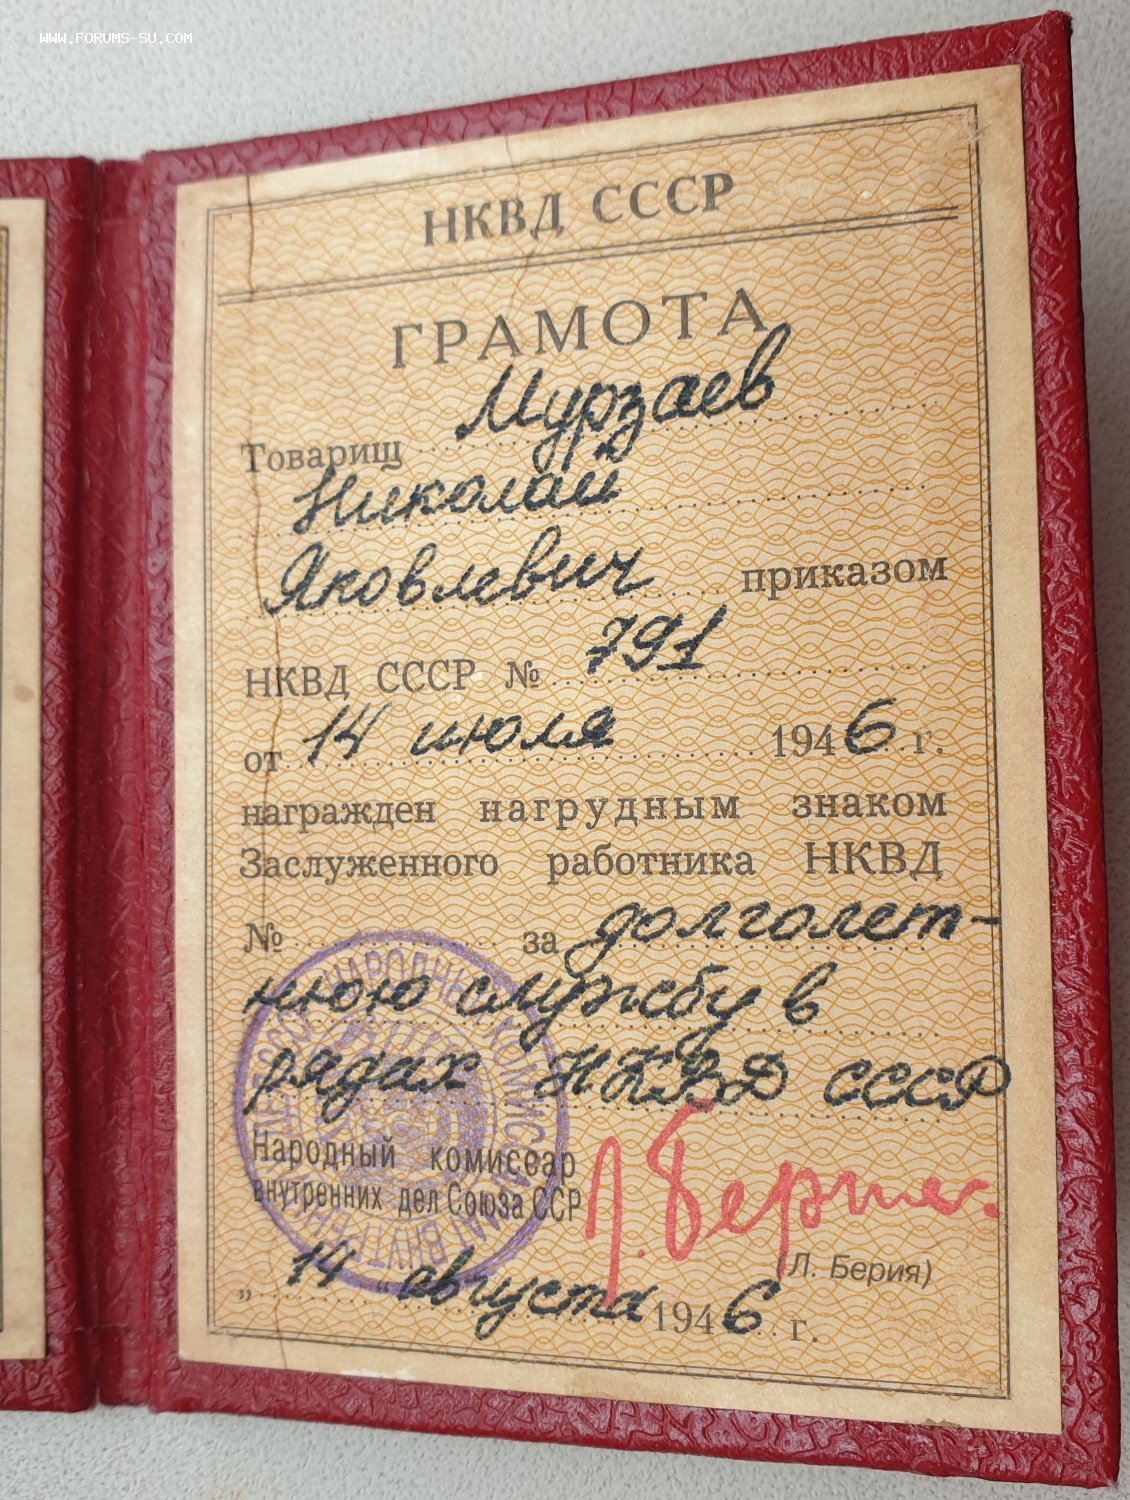 WWW.FORUMS-SU.COM
НКВД СССР
ГРАМОТА
Товарищ Мурзаев
Николай
Яковлевич приказом
НКВД СССР № 791
от 14 июля 1946 г.
награжден нагрудным знаком
Заслуженного работника НКВД
№ за долголет-
нюю службу в
рядах НКВД СССР
Народный комиссар
внутренних дел Союза ССР
Л. Берия
(Л. Берия)
„ 14 “ августа 1946 г.